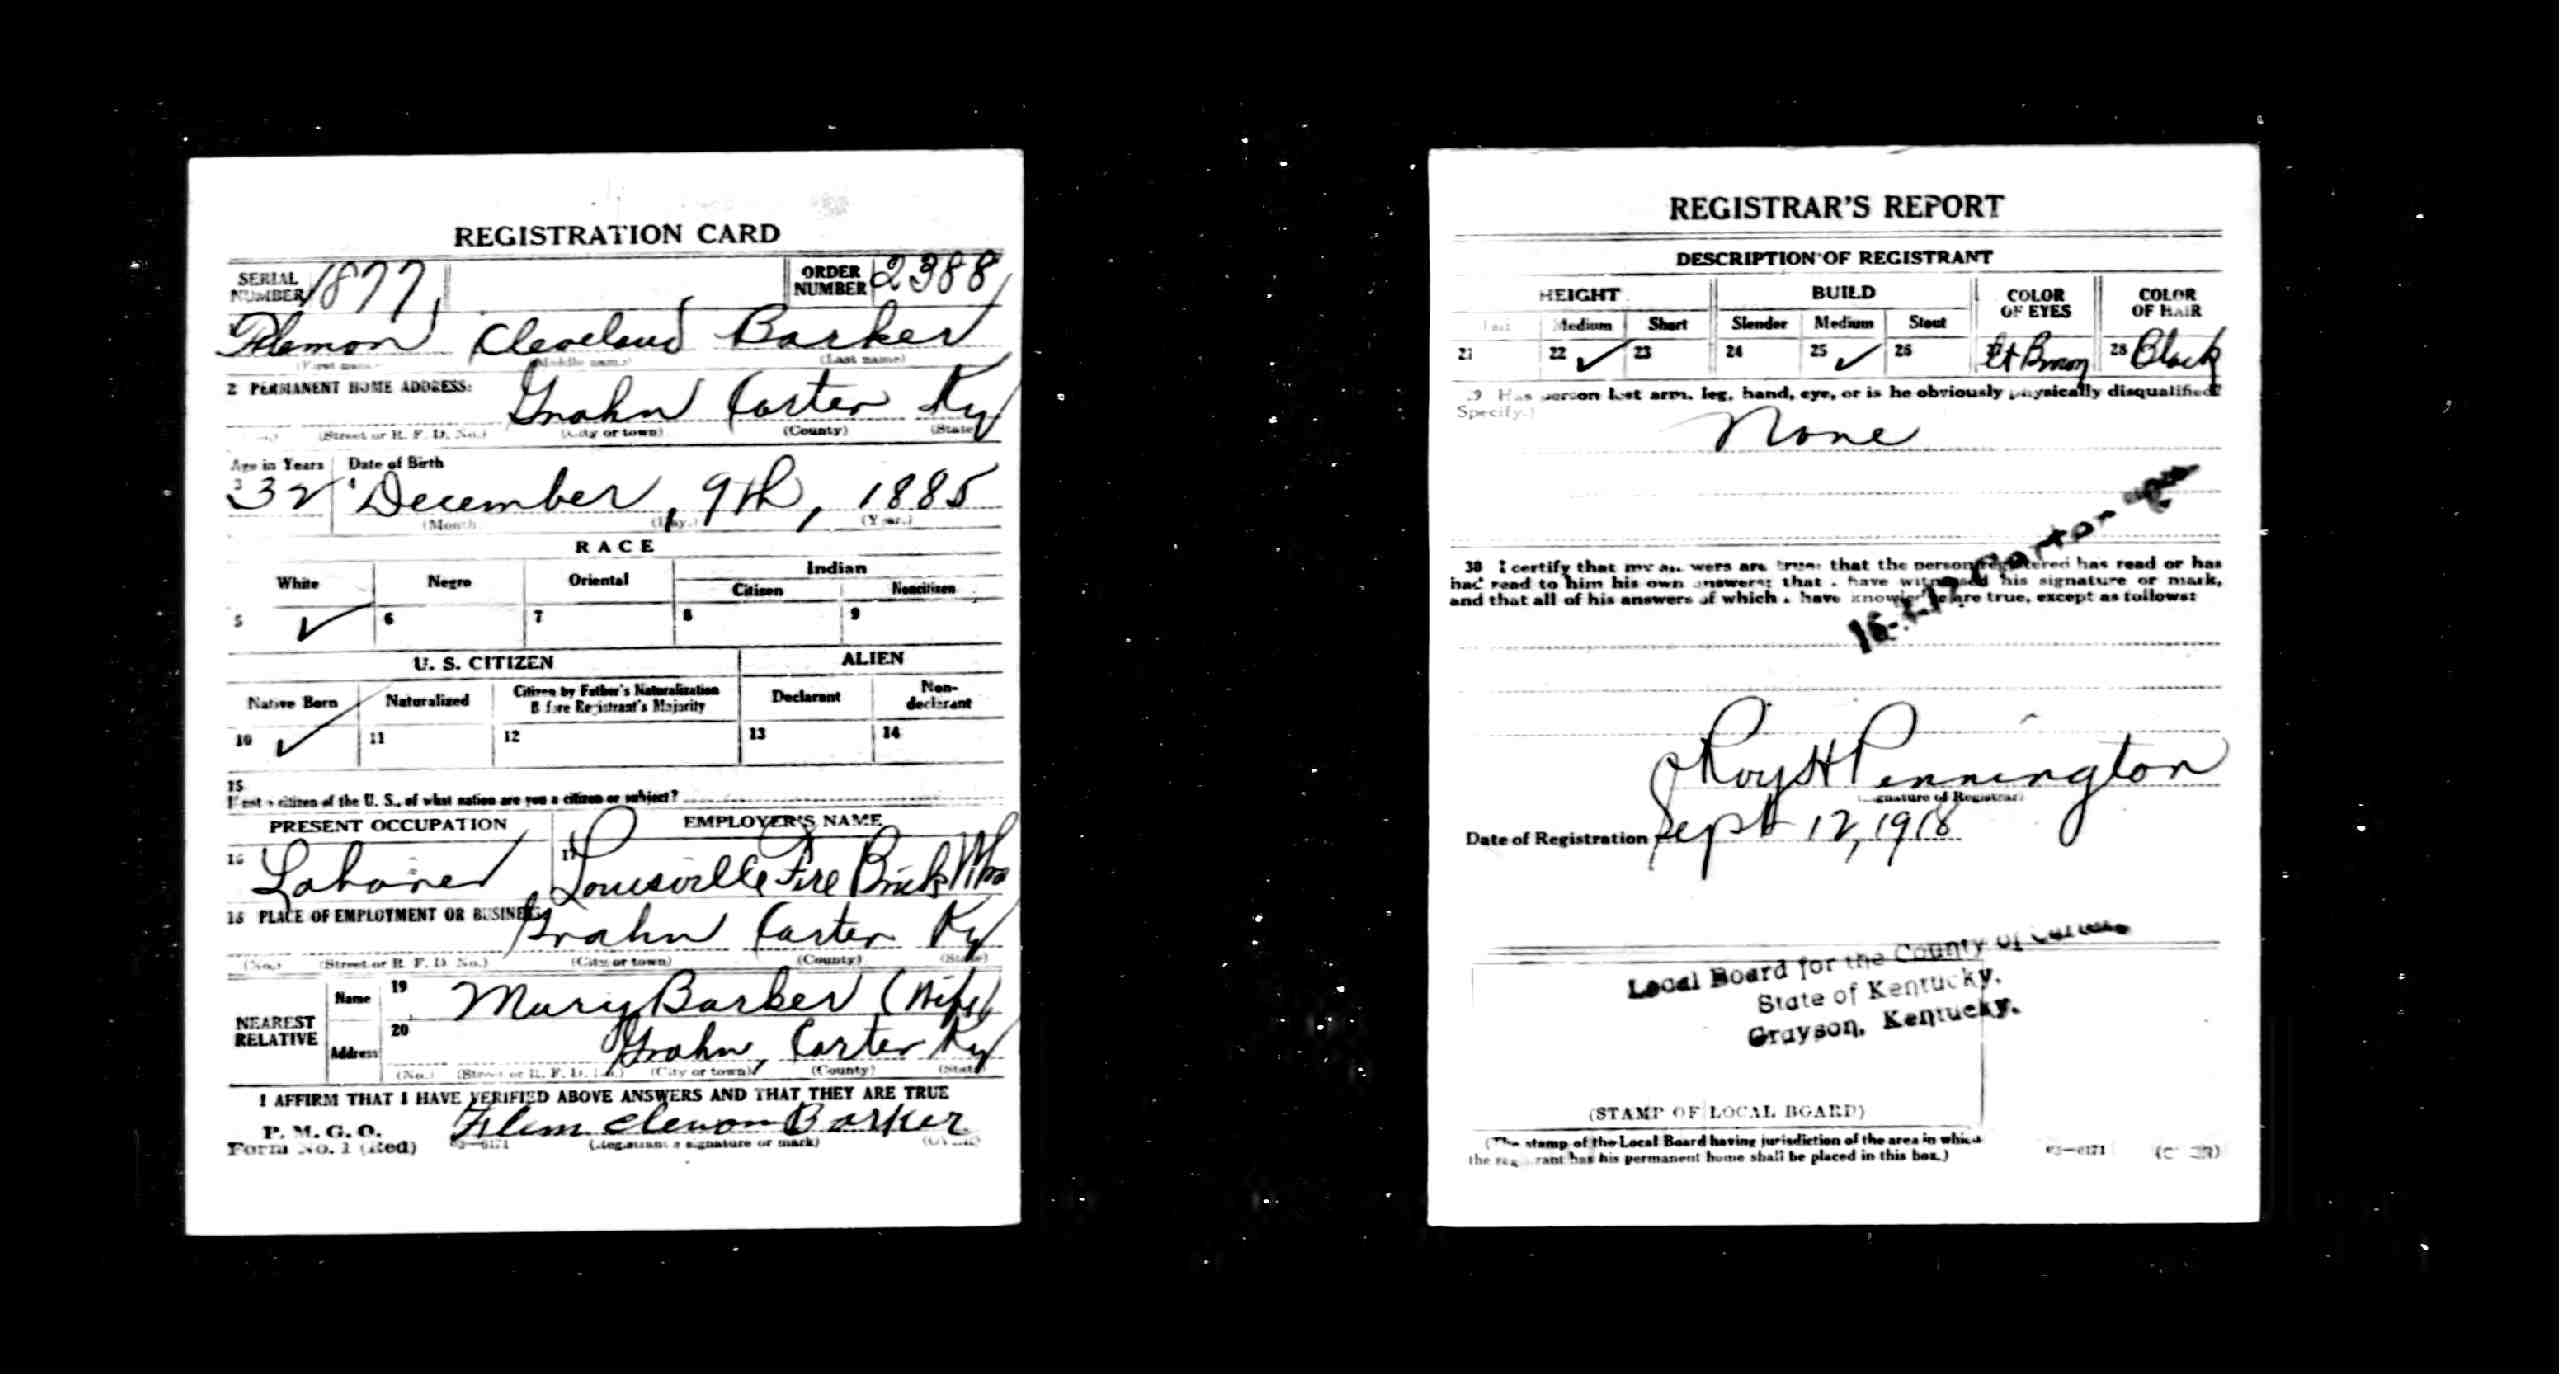 REGISTRATION CARD
SERIAL NUMBER 1877 ORDER NUMBER 2388
Flemon Cleveland Barker
(First name) (Middle name) (Last name)
2 PERMANENT HOME ADDRESS:
Grahn Carter Ky
(No.) (Street or R. F. D. No.) (City or town) (County) (State)
Age in Years Date of Birth
3 32 4 December, 9th, 1885
(Month.) (Day.) (Year.)
RACE
White Negro Oriental Indian
Citizen Noncitizen
5 ✓ 6 7 8 9
U. S. CITIZEN ALIEN
Native Born Naturalized Citizen by Father's Naturalization Before Registrant's Majority Declarant Non-declarant
10 ✓ 11 12 13 14
15
If not a citizen of the U. S., of what nation are you a citizen or subject?
PRESENT OCCUPATION EMPLOYER'S NAME
16 Laborer 17 Louisville Fire Brick
18 PLACE OF EMPLOYMENT OR BUSINESS:
Grahn Carter Ky
(No.) (Street or R. F. D. No.) (City or town) (County) (State)
NEAREST RELATIVE
Name 19 Mary Barker (Wife)
Address 20 Grahn, Carter Ky
(No.) (Street or R. F. D. No.) (City or town) (County) (State)
I AFFIRM THAT I HAVE VERIFIED ABOVE ANSWERS AND THAT THEY ARE TRUE
P. M. G. O.
Form No. 1 (Red) 03—6171 Flem Barker
(Registrant's signature or mark) (OVER)
REGISTRAR'S REPORT
DESCRIPTION OF REGISTRANT
HEIGHT BUILD COLOR OF EYES COLOR OF HAIR
Tall Medium Short Slender Medium Stout
21 22 ✓ 23 24 25 ✓ 26 27 Lt Brown 28 Black
29 Has person lost arm, leg, hand, eye, or is he obviously physically disqualified?
(Specify.)
None
30 I certify that my answers are true; that the person registered has read or has
had read to him his own answers; that I have witnessed his signature or mark,
and that all of his answers of which I have knowledge are true, except as follows:
Roy H Pennington
(Signature of Registrar)
Date of Registration Sept 12, 1918
Local Board for the County of Carter,
State of Kentucky.
Grayson, Kentucky.
(STAMP OF LOCAL BOARD)
(The stamp of the Local Board having jurisdiction of the area in which
the registrant has his permanent home shall be placed in this box.)
03—6171 (OVER)